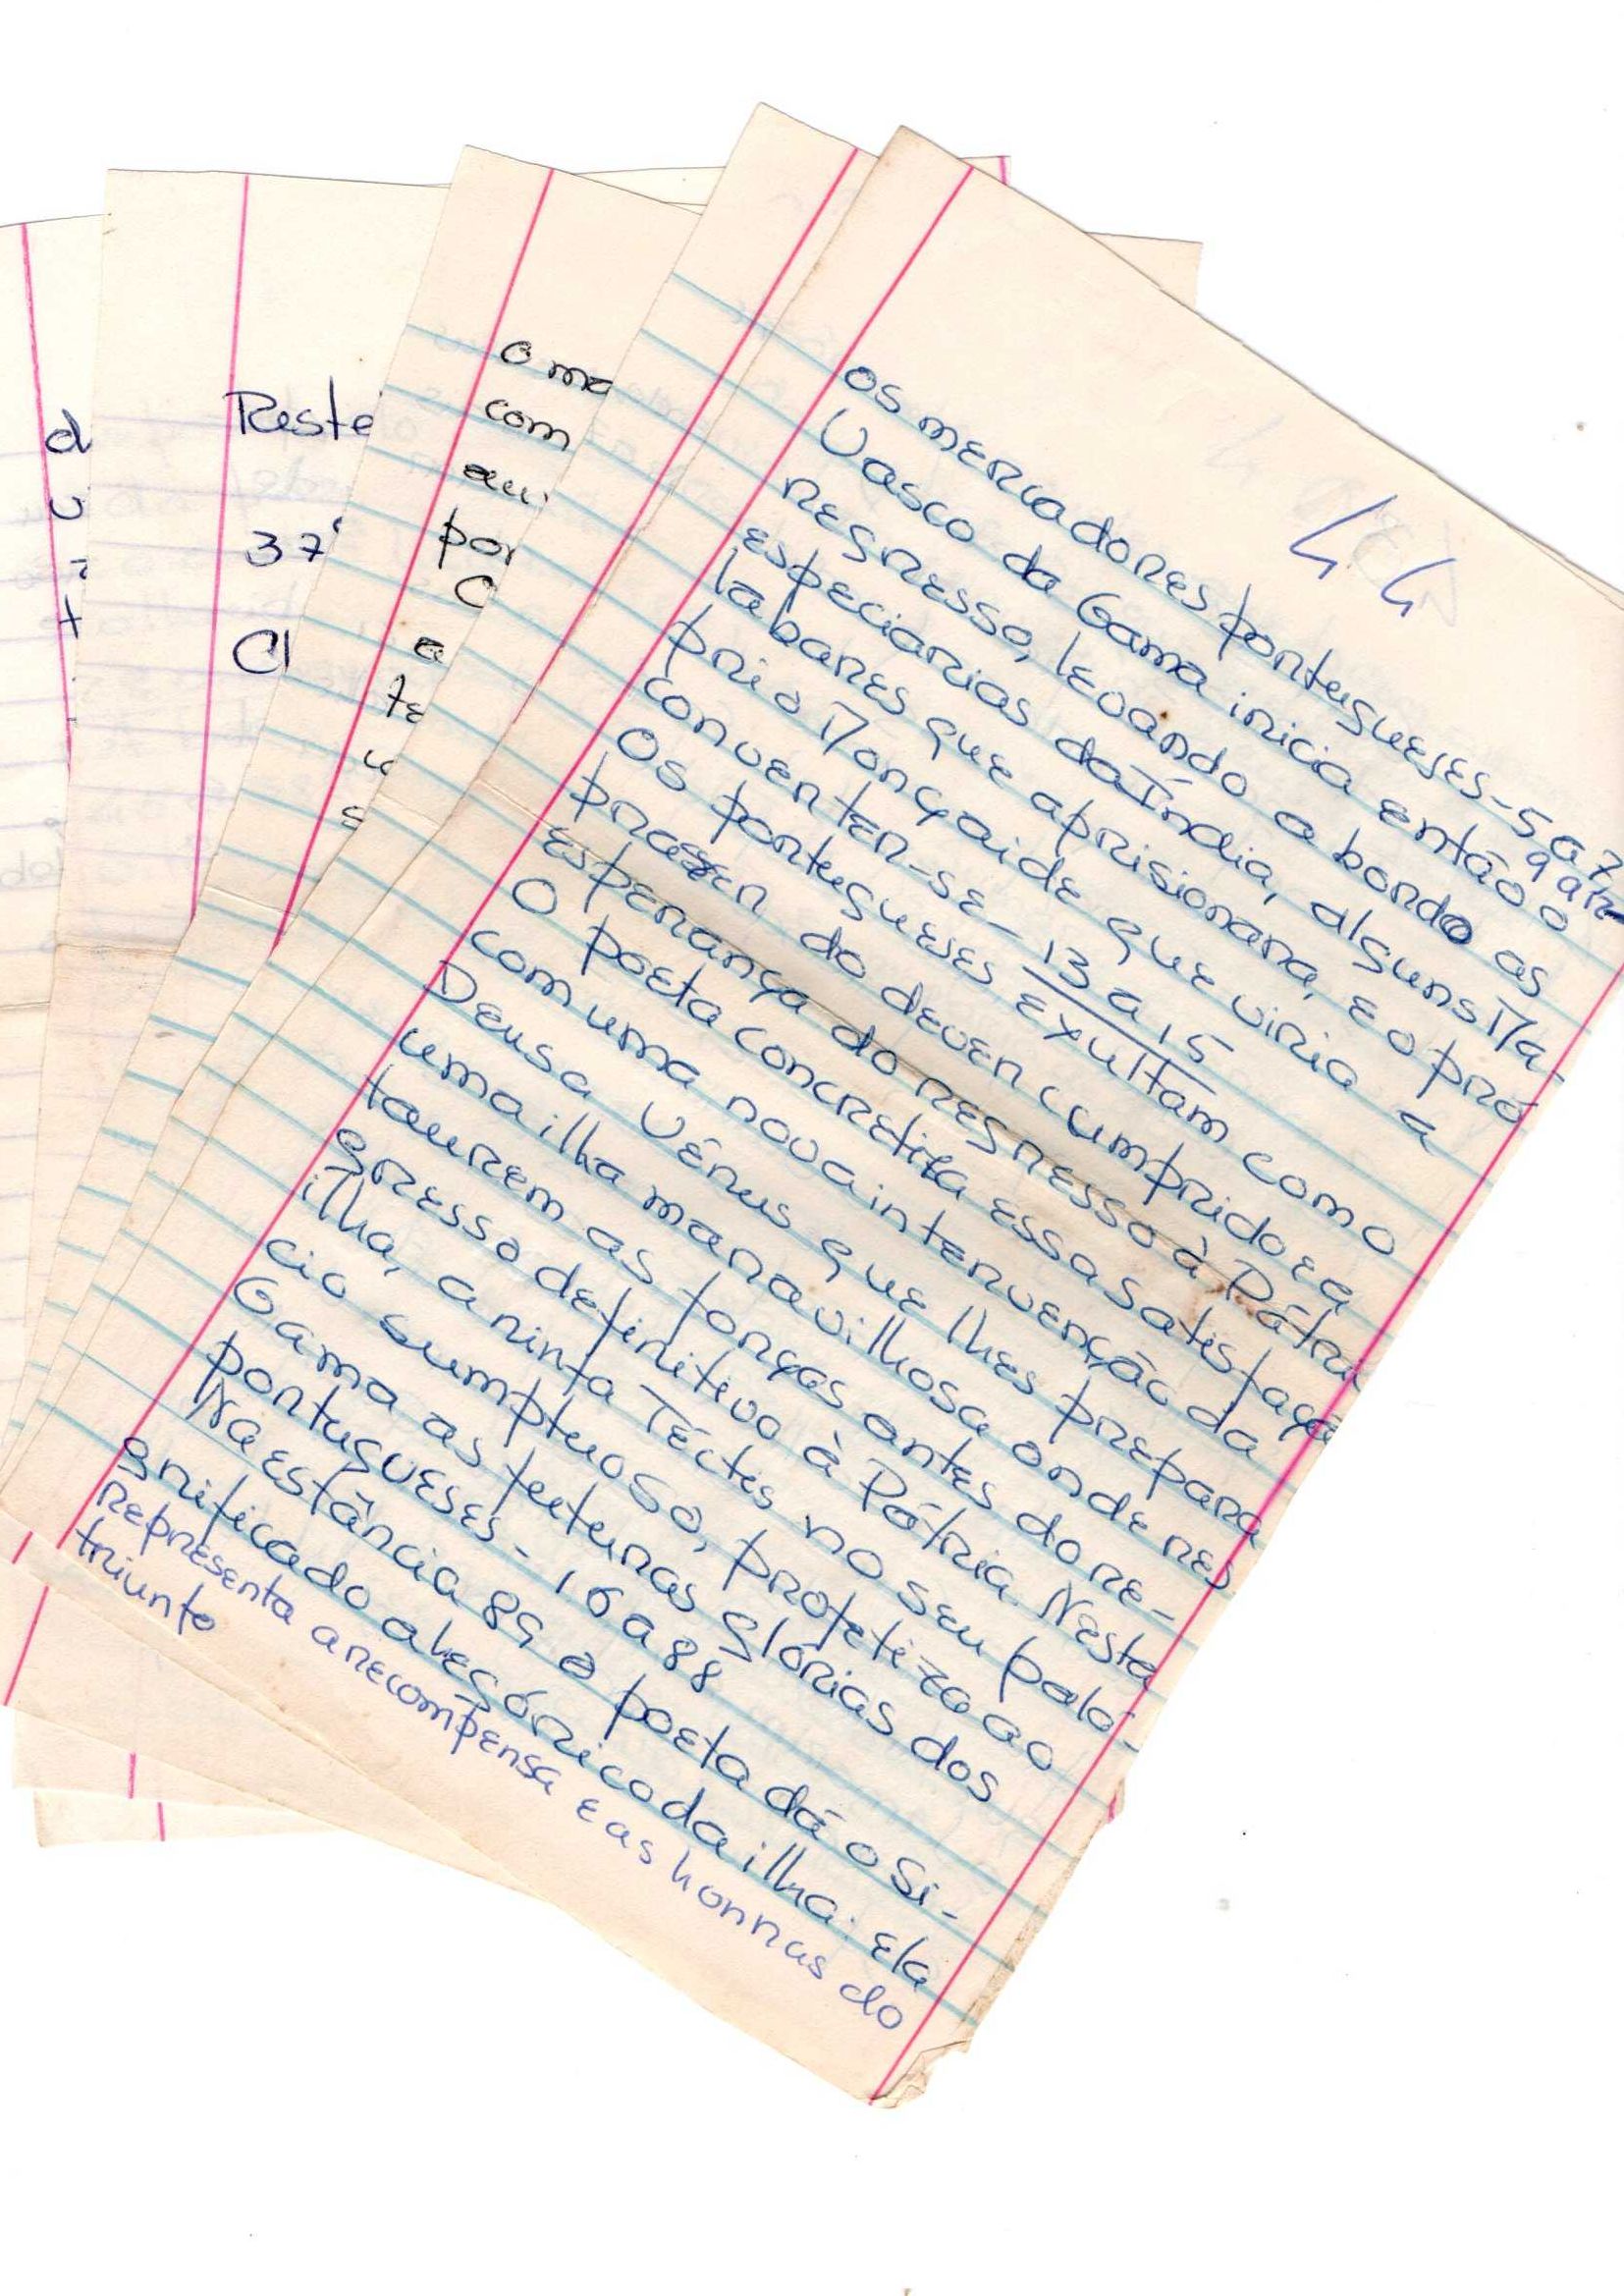 44
os mercadores portugueses - 5 a 7
9 a 12
Vasco da Gama inicia então o
regresso, levando a bordo as
especiarias da Índia, alguns Ma-
labares que aprisionara, e o pró
prio Monçaide que viria a
converter-se - 13 a 15
Os portugueses exultam com o
prazer do dever cumprido e a
esperança do regresso à Pátria
O poeta concretiza essa satisfação
com uma nova intervenção da
Deusa Vénus que lhes prepara
uma ilha maravilhosa onde res
taurem as forças antes do re-
gresso definitivo à Pátria. Nesta
ilha, a ninfa Téctis no seu palá-
cio sumptuoso, profetiza ao
Gama as futuras glórias dos
portugueses - 16 a 88
Na estância 89 o poeta dá o Si-
gnificado alegórico da ilha: Ela
representa a recompensa e as honras do
triunfo
o ma
com
por
C
a
te
u
s
Reste
37
Cl
d
u
t